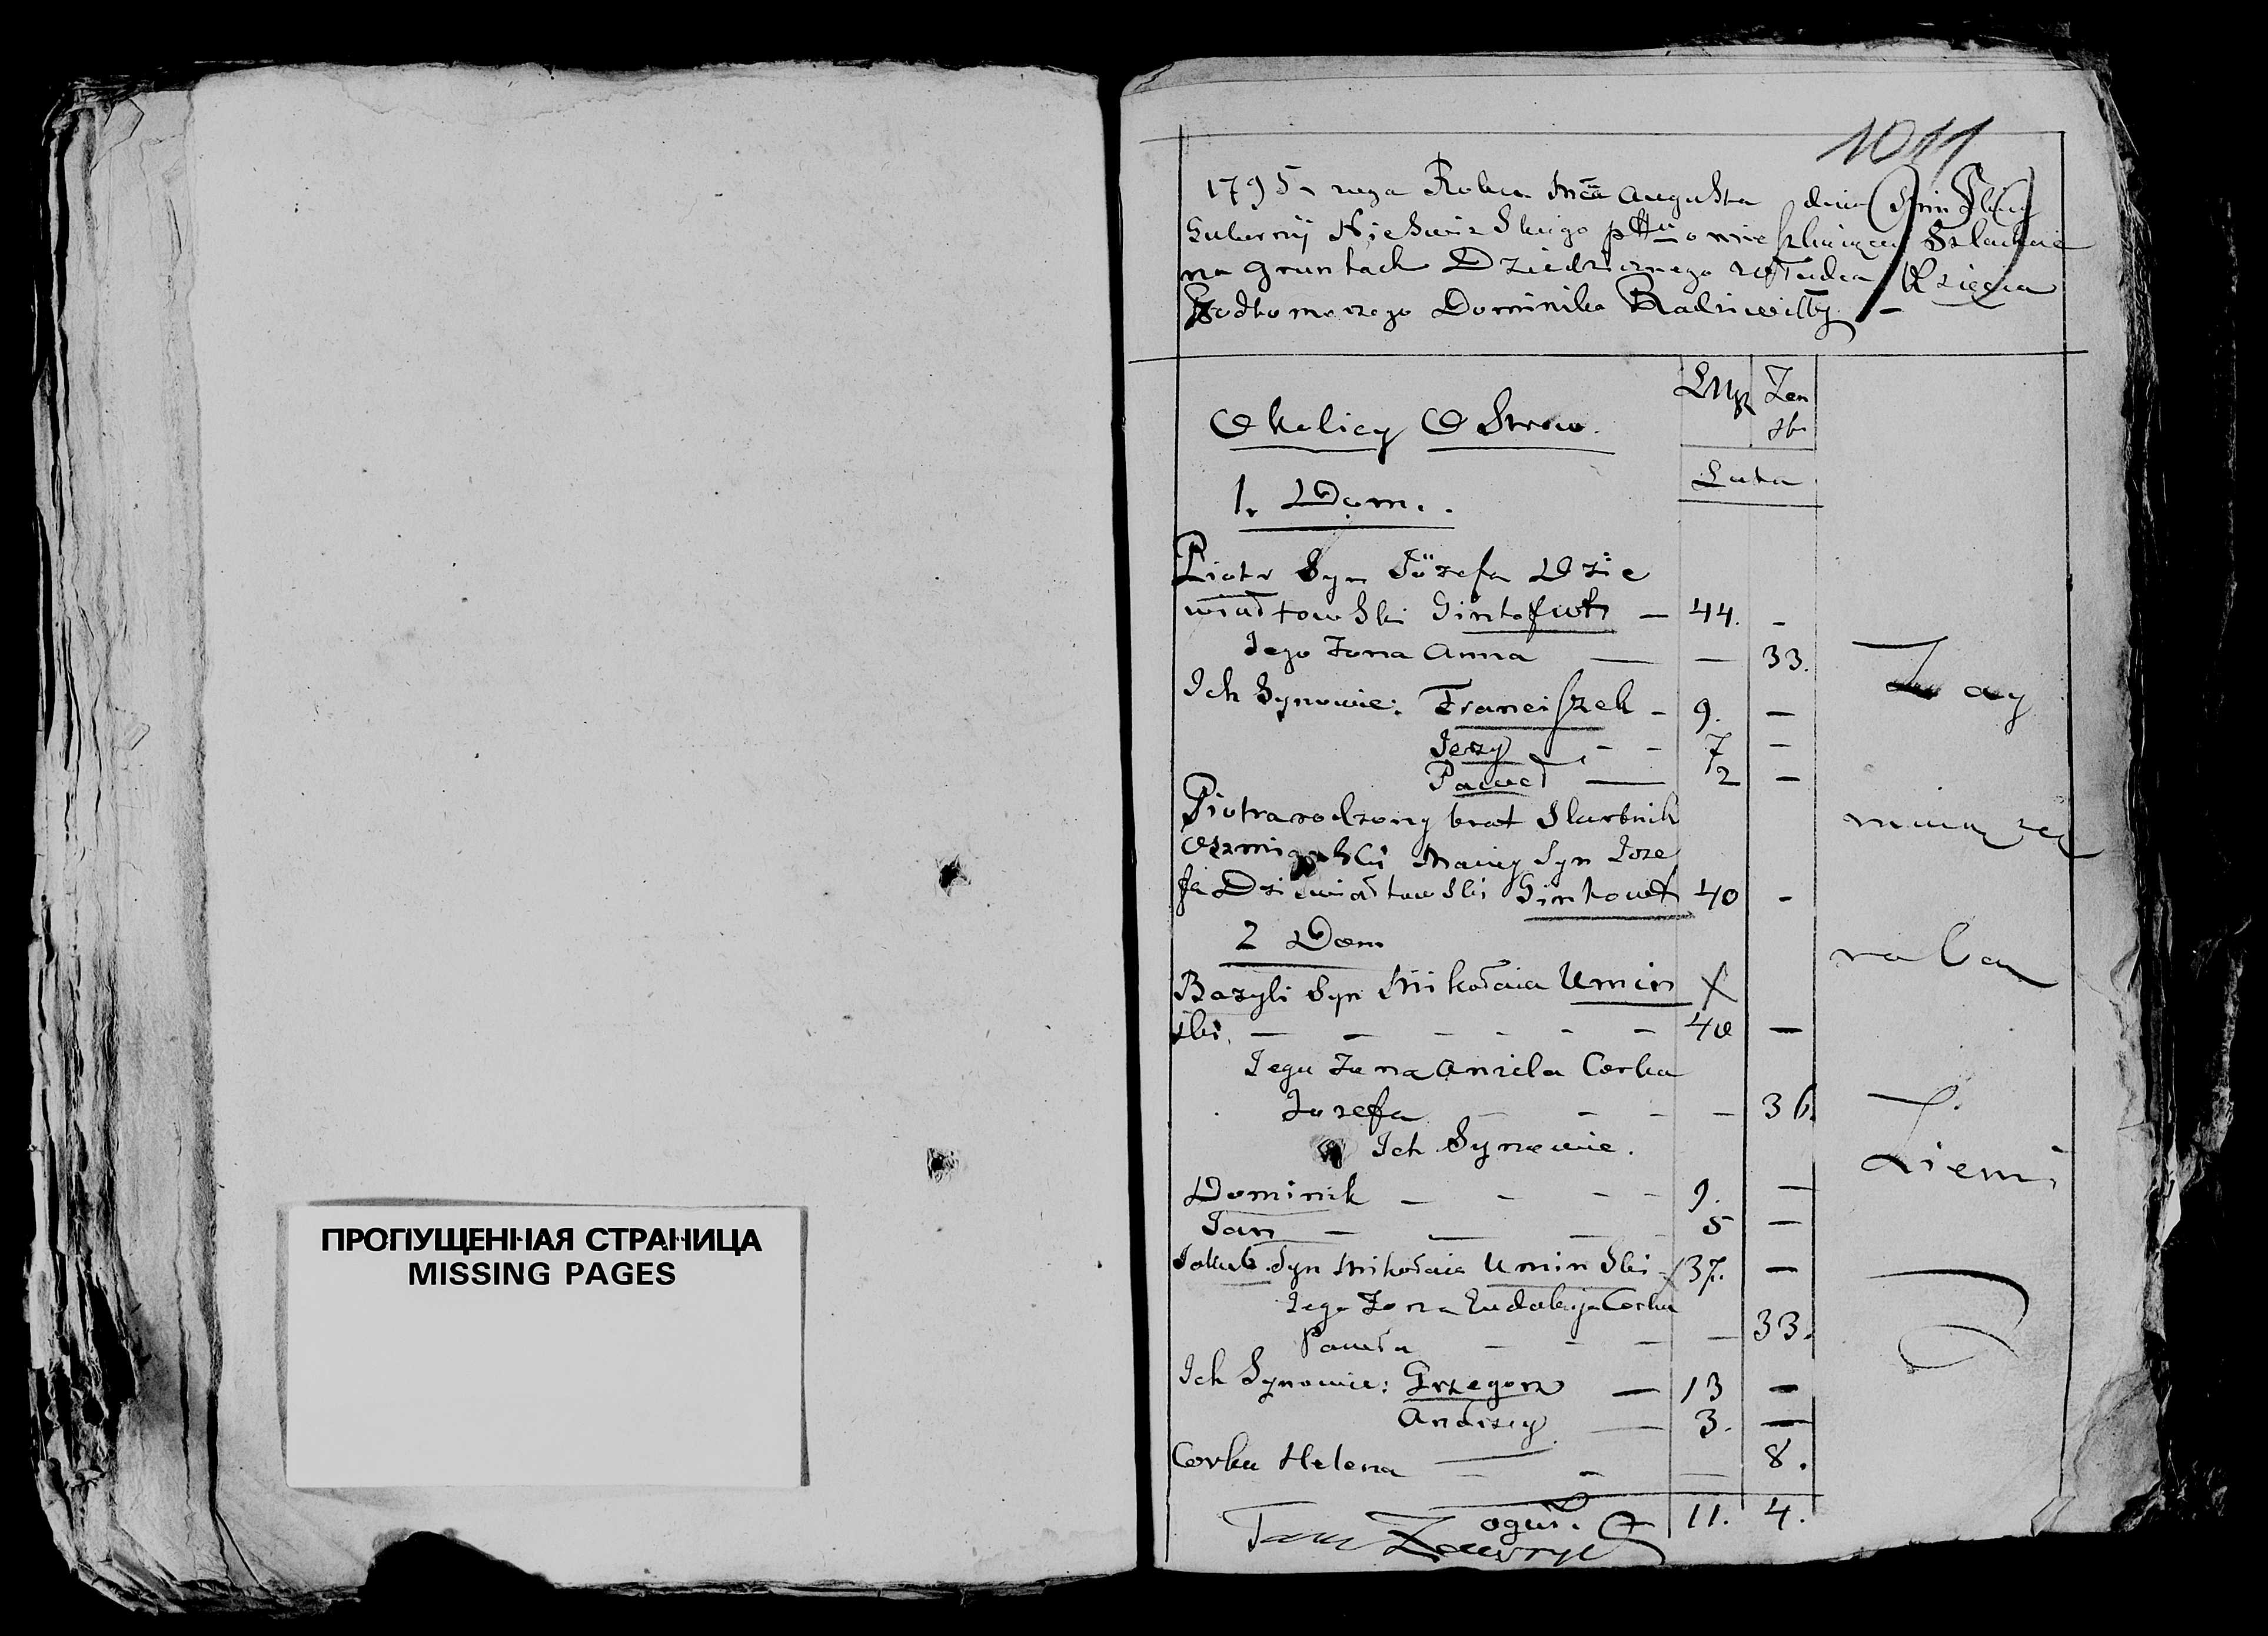 ПРОПУЩЕННАЯ СТРАНИЦА
MISSING PAGES
1011
1795 Augusta dnia
Szlachcie
na gruntach Dziedzicznego Księcia
Podkomorzego Dominika Radziwiłły
Męz Zen
ska
Okolicy Ostrow.
Lata
1. Dom.
Piotr Syn Józefa Dzie
wiałtowski Gintofwt — 44. -
Jego Zona Anna — — 33.
Ich Synowie: Franciszek - 9. —
Jerzy - - 7 —
Paweł — 2 —
Piotra rodzony brat Skarbnik
Oszmiański Maciey Syn Joze
fa Dziewiałtowski Gintowt 40 -
2 Dom
Bazyli Syn Mikołaia Umin X
ski. — — — — — — 40 —
Jego Zona Aniela Corka
Jozefa — — — — 36.
Ich Synowie.
Dominik — - - - 9. —
Jan — — — 5 —
Jakub Syn Mikołaia Uminski 37. —
Jego Zona Eudokyja Corka
Pawła - - — — 33.
Ich Synowie: Grzegorz — 13 —
Andrzey — 3. —
Corka Helena — - — 8.
oguł. 11. 4.
Zay
muiący
Ziemi